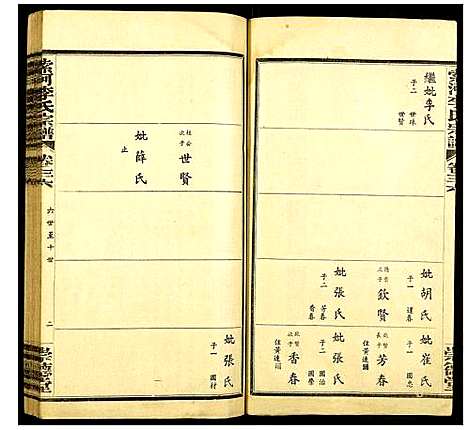 索河李氏宗譜
卷三六
崇德堂
繼妣李氏
子二
世珠
世賢
妣胡氏
子一
謹春
次子
欽賢
妣張氏
子二
芳春
香春
妣崔氏
子一
國忠
欽賢
長子
芳春
住黃連
妣張氏
子二
國治
國榮
欽賢
次子
香春
住黃連
索河李氏宗譜
卷三六
六世至十世
二
崇德堂
次子
世賢
妣薛氏
止
妣張氏
子一
國材